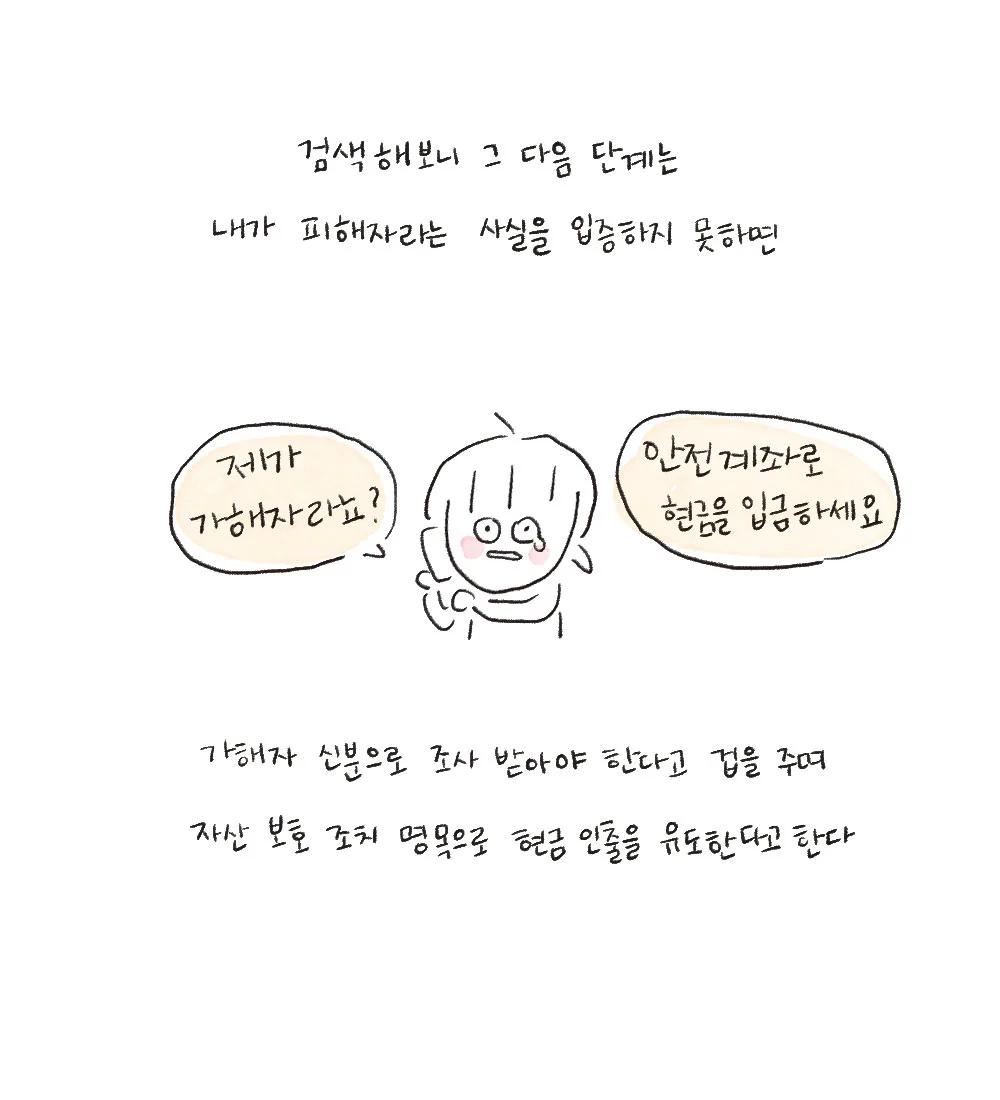 검색해보니 그 다음 단계는
내가 피해자라는 사실을 입증하지 못하면
제가
가해자라뇨?
안전계좌로
현금을 입금하세요
가해자 신분으로 조사 받아야 한다고 겁을 주며
자산 보호 조치 명목으로 현금 인출을 유도한다고 한다